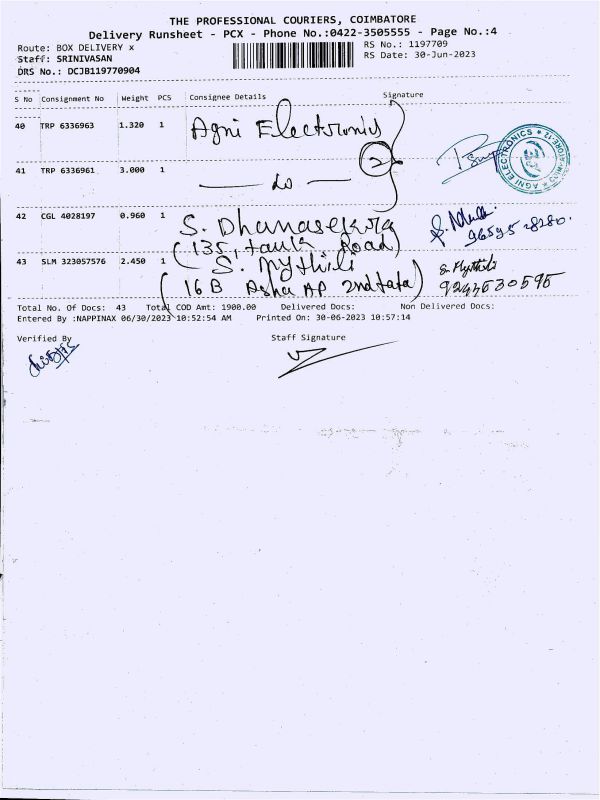 THE PROFESSIONAL COURIERS, COIMBATORE
Delivery Runsheet - PCX - Phone No.:0422-3505555 - Page No.:4
Route: BOX DELIVERY x
RS No.: 1197709
Staff: SRINIVASAN
RS Date: 30-Jun-2023
DRS No.: DCJB119770904
S No Consignment No Weight PCS Consignee Details Signature
40 TRP 6336963 1.320 1 Agni Electronics
2
AGNI ELECTRONICS
41 TRP 6336961 3.000 1 — do —
42 CGL 4028197 0.960 1 S. Dhanasekara
(135, Road)
43 SLM 323057576 2.450 1 S. Mythili
S. Mythili
(16 B Asha AP 2nd tata)
Total No. Of Docs: 43 Total COD Amt: 1900.00 Delivered Docs: Non Delivered Docs:
Entered By :NAPPINAX 06/30/2023 10:52:54 AM Printed On: 30-06-2023 10:57:14
Verified By Staff Signature